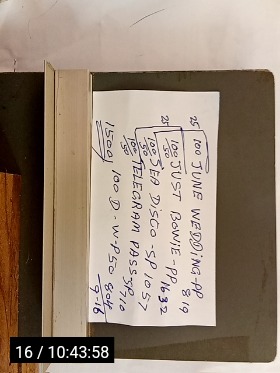 25 100 JUNE WEDDING-PP 819
25 100 JUST BOWIE-PP 1632
50
100 SEA DISCO-SP 1057
50
100 TELEGRAM PASS SP 710
50
1500 100 D-W-P50 804
9-16
16 / 10:43:58